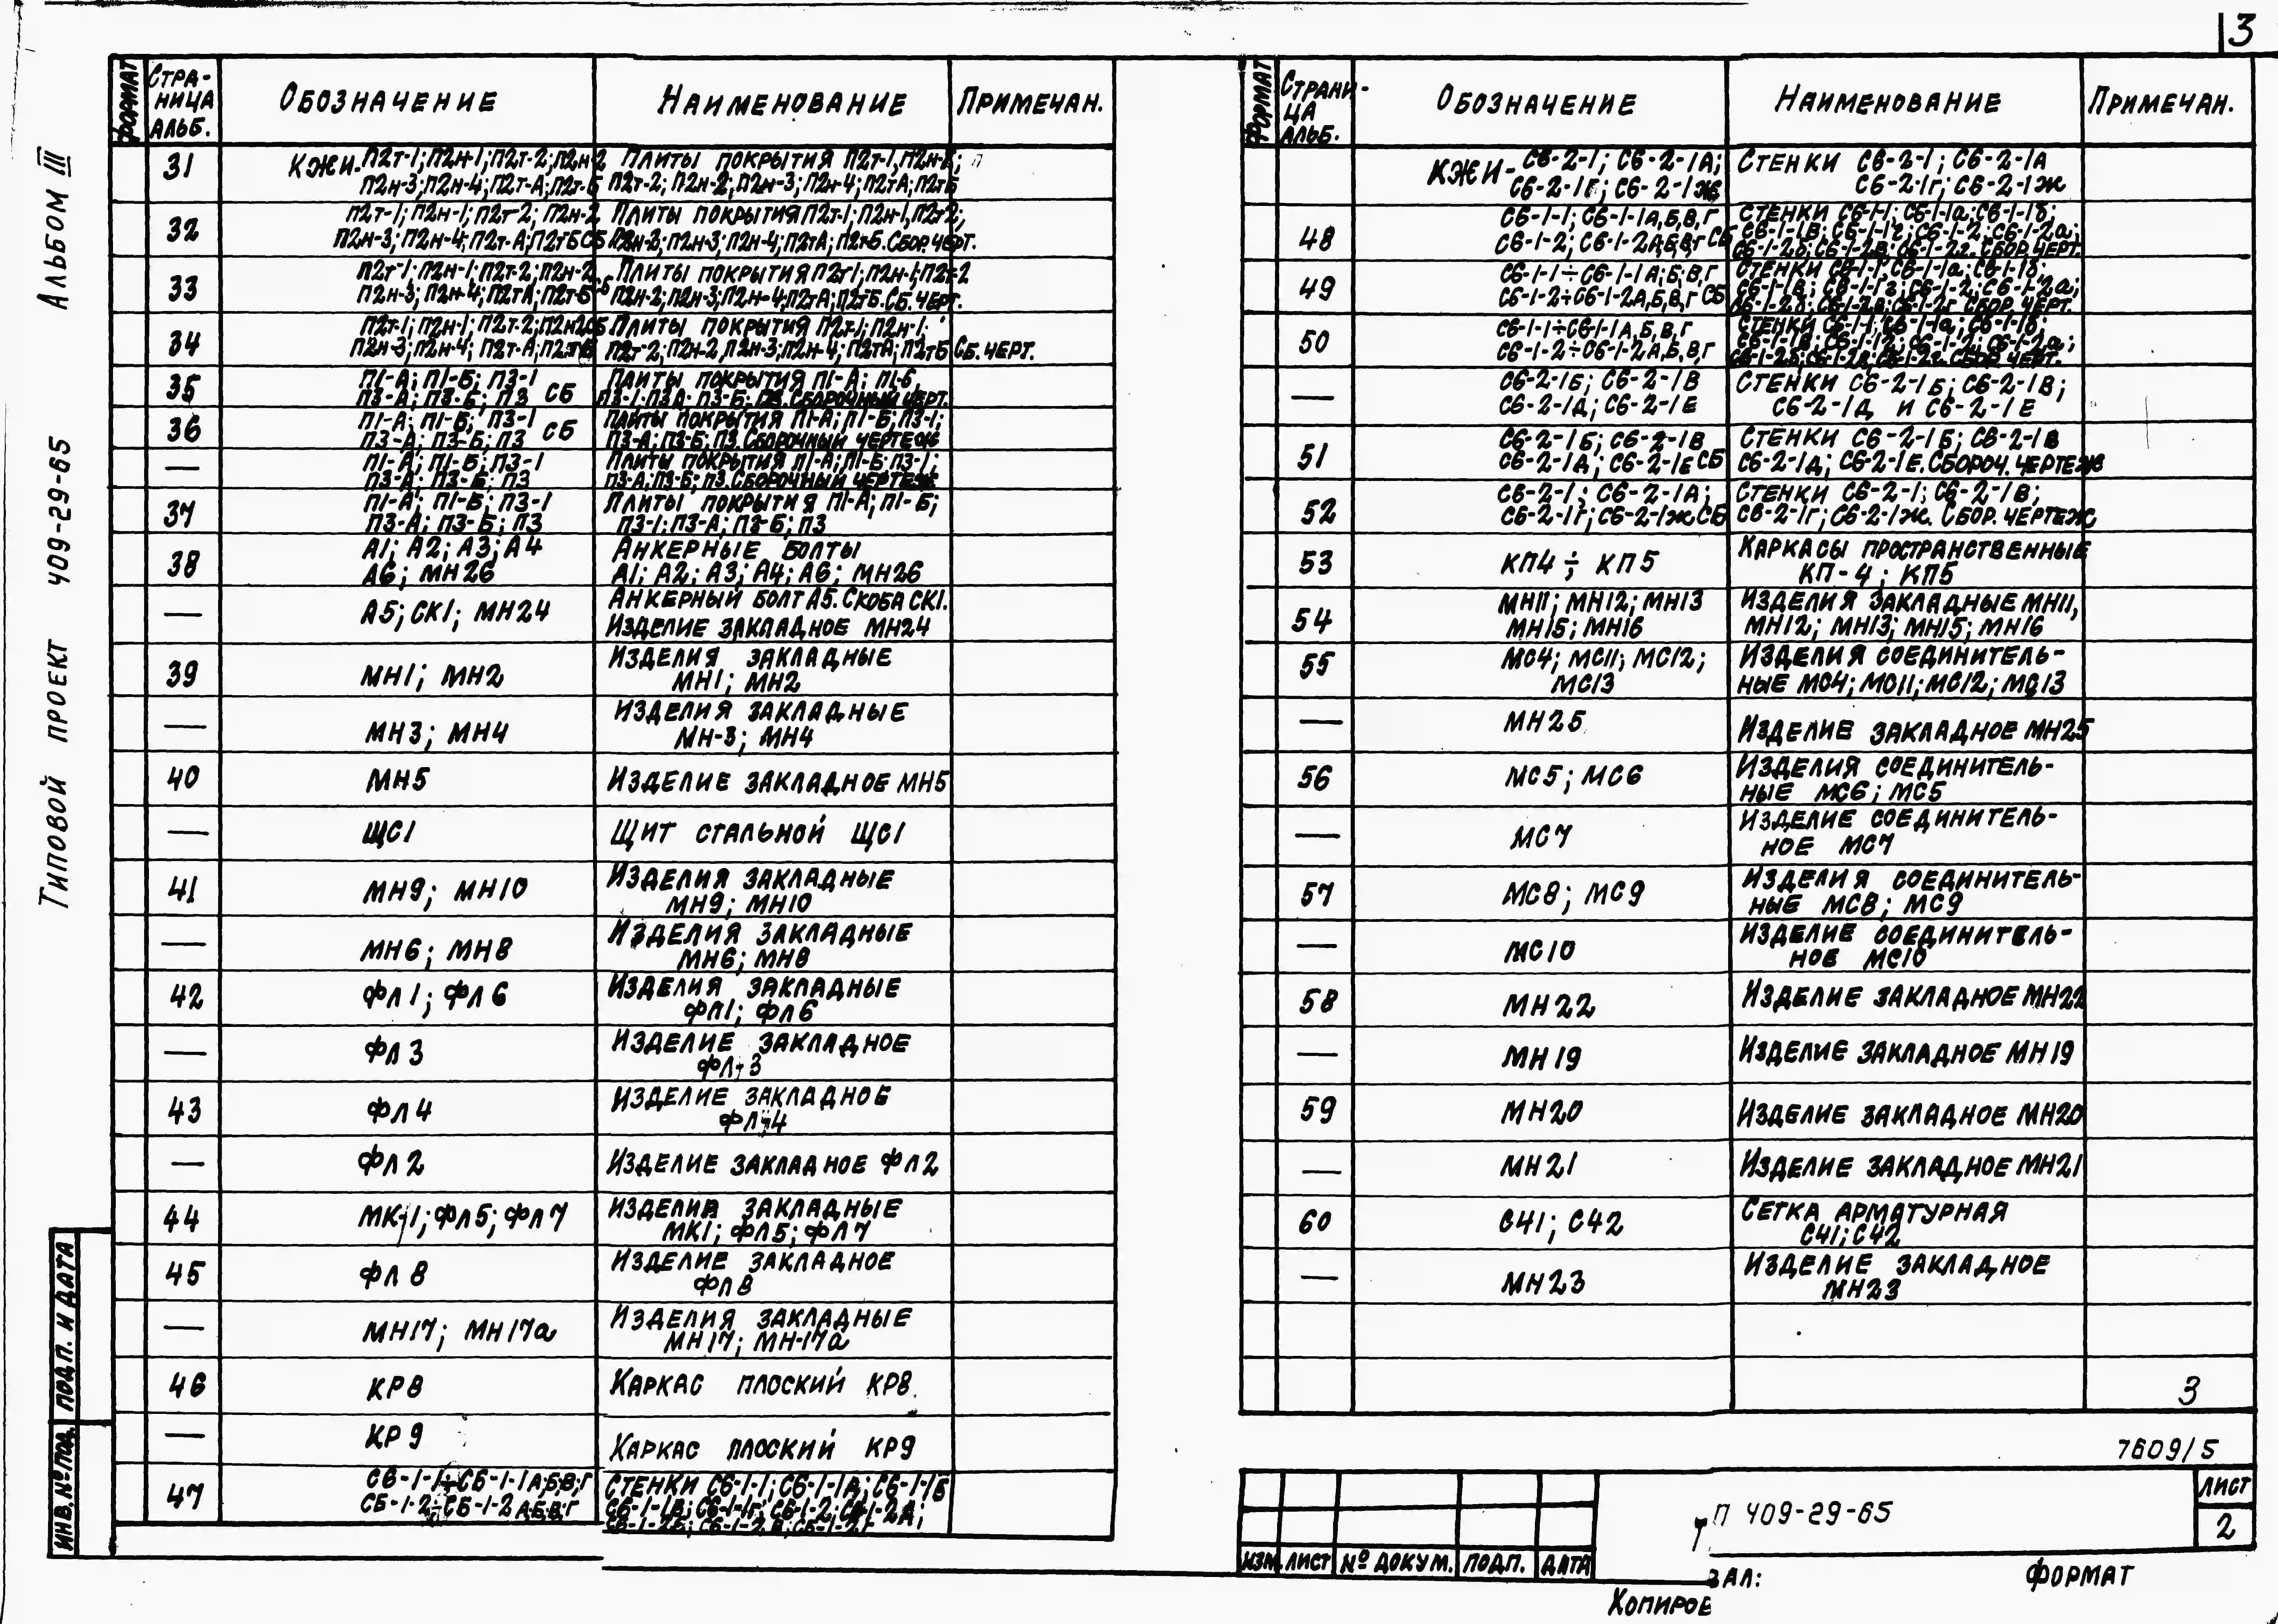 3
Альбом III
Типовой проект 409-29-65
Формат Страница альб. Обозначение Наименование Примечан.
31 КЖИ-П2т-1; П2н-1; П2т-2; П2н-2 Плиты покрытия П2т-1, П2н-1;
П2н-3; П2н-4; П2т-А; П2т-Б П2т-2; П2н-2; П2н-3; П2н-4; П2тА; П2тБ
32 П2т-1; П2н-1; П2т-2; П2н-2 Плиты покрытия П2т-1; П2н-1, П2т-2;
П2н-3; П2н-4; П2т-А; П2тБ СБ П2н-2; П2н-3; П2н-4; П2тА; П2т-Б. Сбор. черт.
33 П2т-1; П2н-1; П2т-2; П2н-2 Плиты покрытия П2т-1; П2н-1; П2т-2
П2н-3; П2н-4; П2тА; П2т-Б СБ П2н-2; П2н-3; П2н-4; П2тА; П2тБ. Сб. черт.
34 П2т-1; П2н-1; П2т-2; П2н2СБ Плиты покрытия П2т-1; П2н-1;
П2н-3; П2н-4; П2т-А; П2тБ П2т-2; П2н-2, П2н-3; П2н-4; П2тА; П2тБ Сб. черт.
35 П1-А; П1-Б; П3-1 Плиты покрытия П1-А; П1-Б,
П3-А; П3-Б; П3 СБ П3-1; П3А; П3-Б; П3. Сборочный черт.
36 П1-А; П1-Б; П3-1 Плиты покрытия П1-А; П1-Б; П3-1;
П3-А; П3-Б; П3 СБ П3-А; П3-Б; П3. Сборочный чертеж
— П1-А; П1-Б; П3-1 Плиты покрытия П1-А; П1-Б; П3-1;
П3-А; П3-Б; П3 П3-А; П3-Б; П3. Сборочный чертеж
37 П1-А; П1-Б; П3-1 Плиты покрытия П1-А; П1-Б;
П3-А; П3-Б; П3 П3-1; П3-А; П3-Б; П3
38 А1; А2; А3; А4 Анкерные болты
А6; МН26 А1; А2; А3; А4; А6; МН26
— А5; СК1; МН24 Анкерный болт А5. Скоба СК1.
Изделие закладное МН24
39 МН1; МН2 Изделия закладные
МН1; МН2
— МН3; МН4 Изделия закладные
МН-3; МН4
40 МН5 Изделие закладное МН5
— ЩС1 Щит стальной ЩС1
41 МН9; МН10 Изделия закладные
МН9; МН10
— МН6; МН8 Изделия закладные
МН6; МН8
42 ФЛ1; ФЛ6 Изделия закладные
ФЛ1; ФЛ6
— ФЛ3 Изделие закладное
ФЛ-3
43 ФЛ4 Изделие закладное
ФЛ-4
— ФЛ2 Изделие закладное ФЛ2
44 МК-1; ФЛ5; ФЛ7 Изделия закладные
МК1; ФЛ5; ФЛ7
45 ФЛ8 Изделие закладное
ФЛ8
— МН17; МН17а Изделия закладные
МН17; МН-17а
46 КР8 Каркас плоский КР8.
— КР9 Каркас плоский КР9
47 С6-1-1÷С6-1-1А;Б;В;Г Стенки С6-1-1; С6-1-1А; С6-1-1Б
С6-1-2÷С6-1-2А;Б;В;Г С6-1-1В; С6-1-1Г; С6-1-2; С6-1-2А;
С6-1-2Б; С6-1-2В; С6-1-2Г
Формат Страница альб. Обозначение Наименование Примечан.
КЖИ- С6-2-1; С6-2-1А; Стенки С6-2-1; С6-2-1А
С6-2-1Г; С6-2-1Ж С6-2-1Г; С6-2-1Ж
48 С6-1-1; С6-1-1А,Б,В,Г Стенки С6-1-1; С6-1-1а; С6-1-1б;
С6-1-2; С6-1-2А,Б,В,Г СБ С6-1-1В; С6-1-1г; С6-1-2; С6-1-2а;
С6-1-2б; С6-1-2В; С6-1-2г. Сбор. черт.
49 С6-1-1÷С6-1-1А;Б;В,Г Стенки С6-1-1; С6-1-1а; С6-1-1б;
С6-1-2÷С6-1-2А,Б,В,Г СБ С6-1-1В; С6-1-1г; С6-1-2; С6-1-2а;
С6-1-2б; С6-1-2в; С6-1-2г Сбор. черт.
50 С6-1-1÷С6-1-1А,Б,В,Г Стенки С6-1-1; С6-1-1а; С6-1-1б;
С6-1-2÷С6-1-2А,Б,В,Г С6-1-1В; С6-1-1г; С6-1-2; С6-1-2а;
С6-1-2б; С6-1-2в; С6-1-2г. Сбор. черт.
— С6-2-1Б; С6-2-1В Стенки С6-2-1Б; С6-2-1В;
С6-2-1Д; С6-2-1Е С6-2-1Д и С6-2-1Е
51 С6-2-1Б; С6-2-1В Стенки С6-2-1Б; С6-2-1В
С6-2-1Д; С6-2-1Е СБ С6-2-1Д; С6-2-1Е. Сбороч. чертеж
52 С6-2-1; С6-2-1А; Стенки С6-2-1; С6-2-1В;
С6-2-1Г; С6-2-1Ж СБ С6-2-1Г; С6-2-1Ж. Сбор. чертеж
53 КП4÷КП5 Каркасы пространственные
КП-4; КП5
54 МН11; МН12; МН13 Изделия закладные МН11,
МН15; МН16 МН12; МН13; МН15; МН16
55 МС4; МС11; МС12; Изделия соединитель-
МС13 ные МС4; МС11; МС12; МС13
— МН25 Изделие закладное МН25
56 МС5; МС6 Изделия соединитель-
ные МС6; МС5
— МС7 Изделие соединитель-
ное МС7
57 МС8; МС9 Изделия соединитель-
ные МС8; МС9
— МС10 Изделие соединитель-
ное МС10
58 МН22 Изделие закладное МН22
— МН19 Изделие закладное МН19
59 МН20 Изделие закладное МН20
— МН21 Изделие закладное МН21
60 С41; С42 Сетка арматурная
С41; С42
— МН23 Изделие закладное
МН23
3
7609/5
Т П 409-29-65
Лист
2
Изм. Лист № докум. Подп. Дата
Копировал: Формат
Инв. № под. Подп. и дата